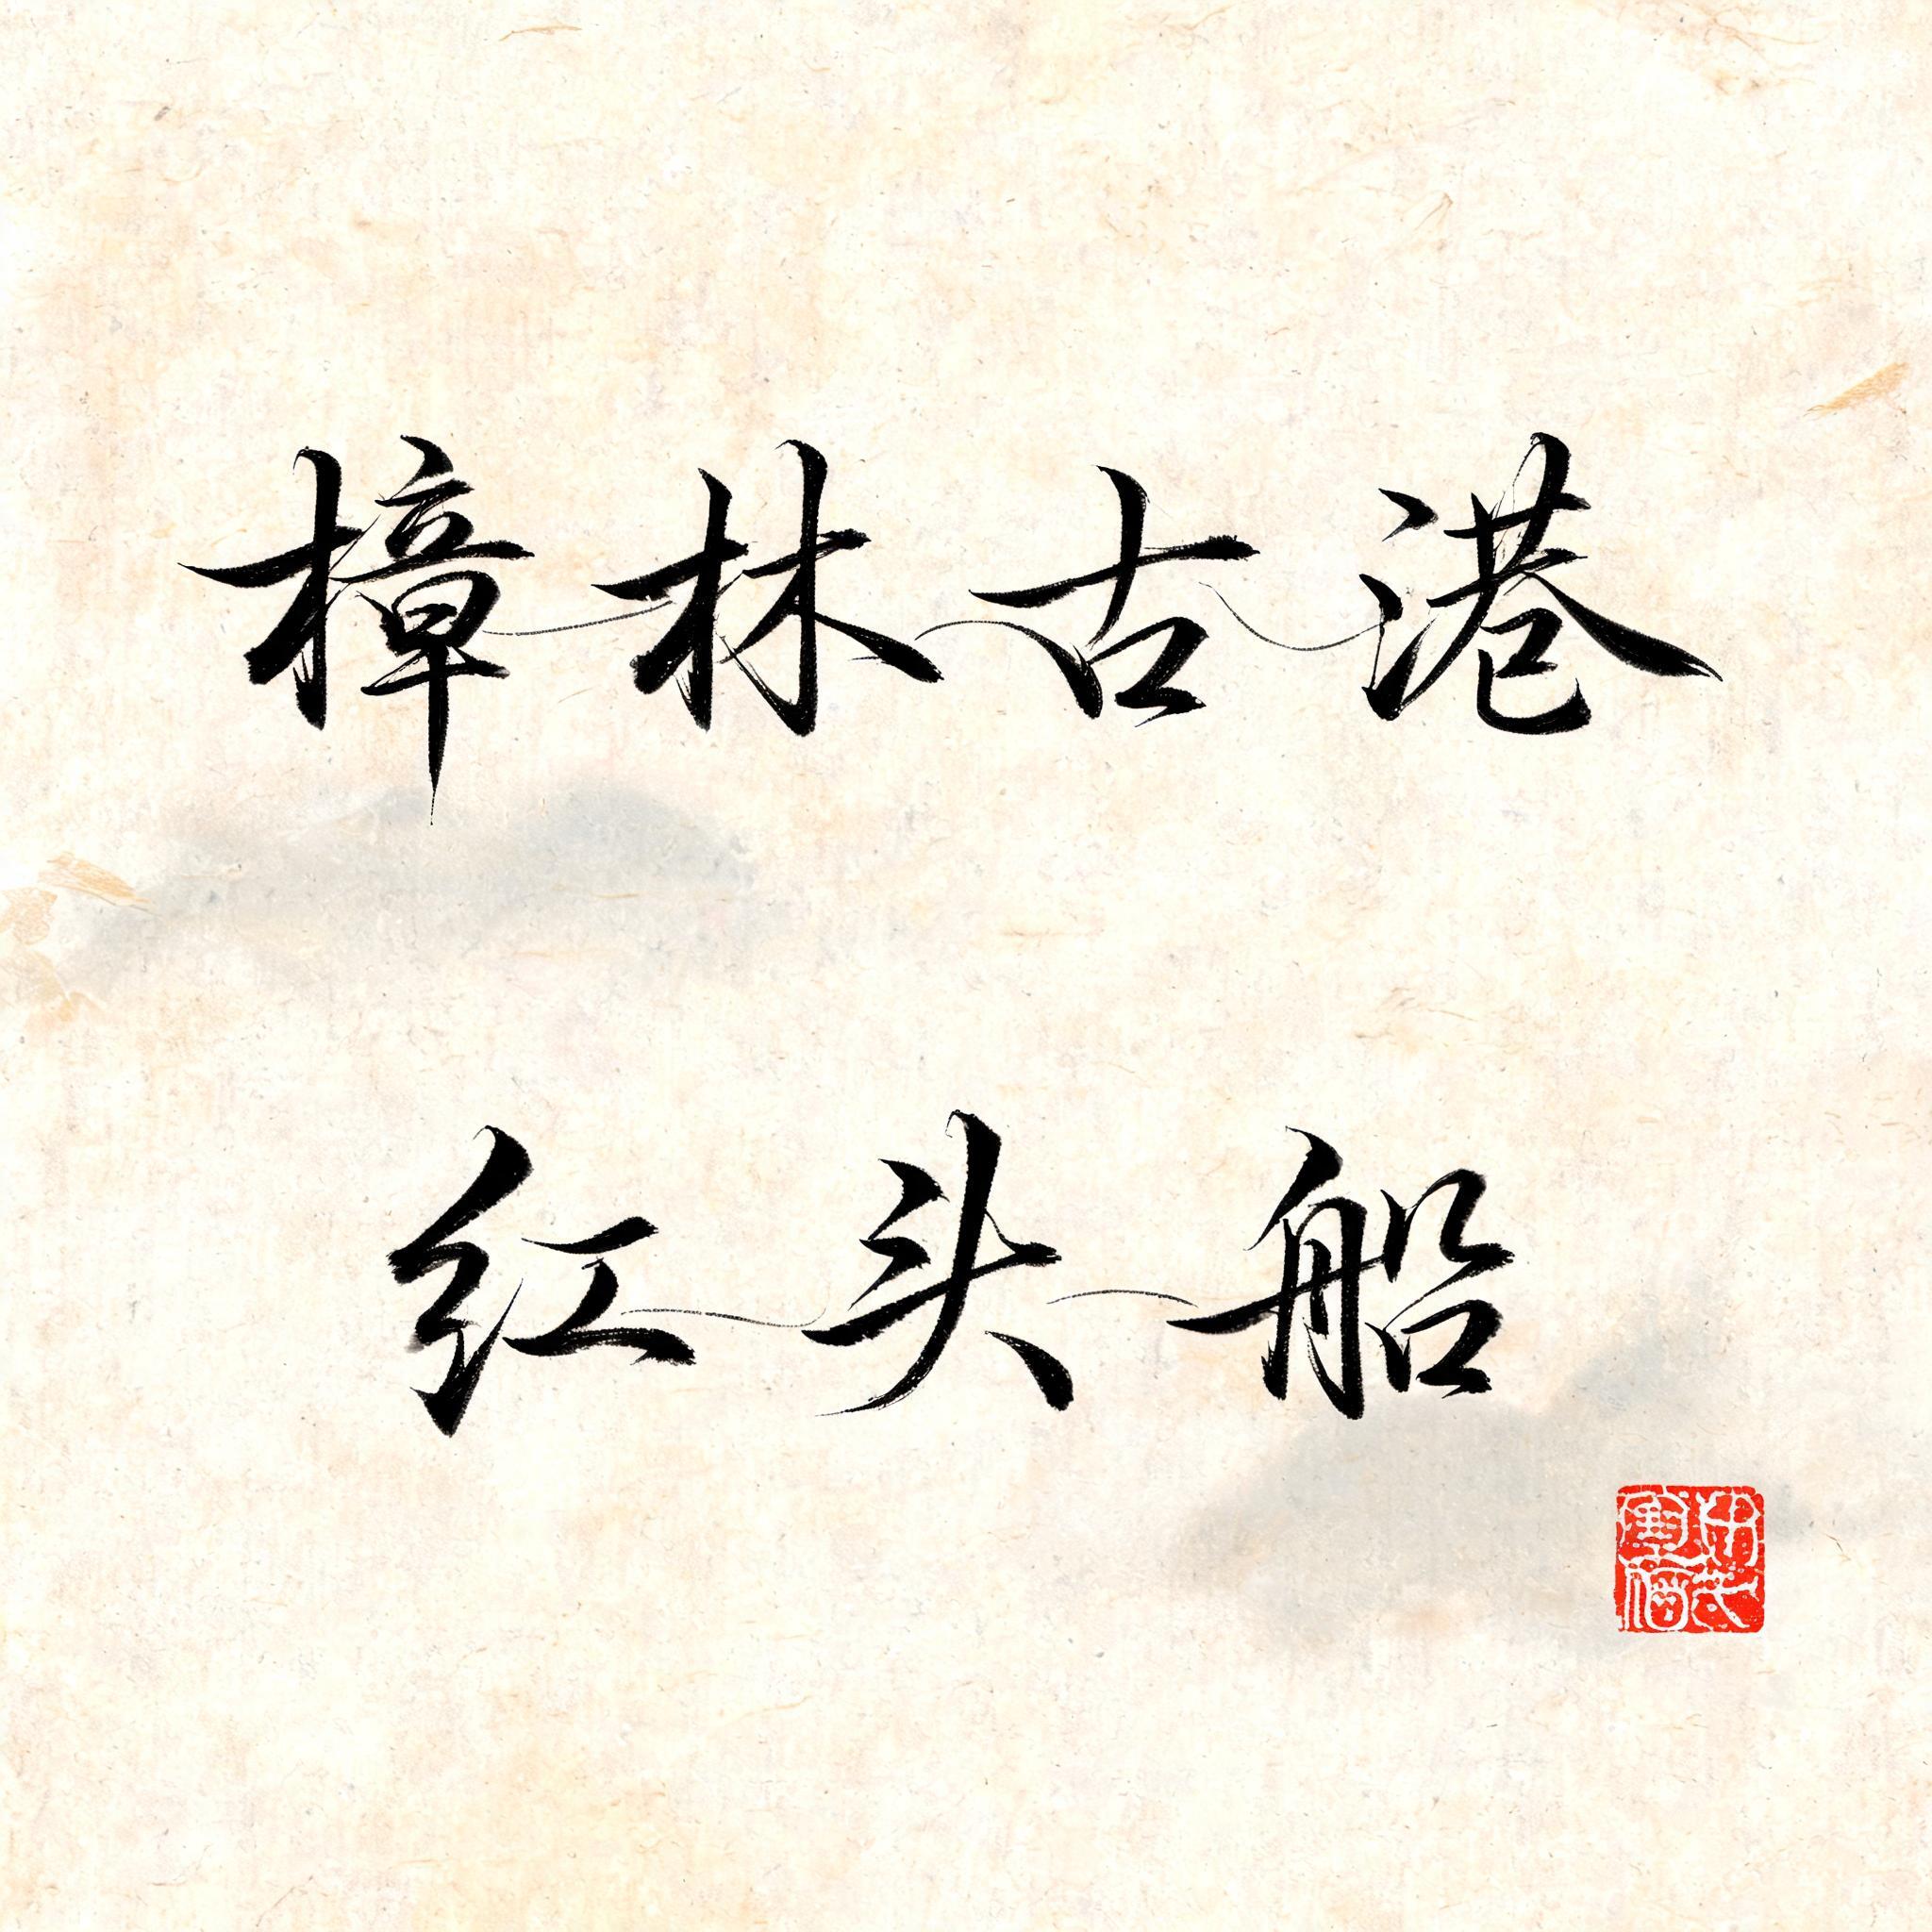 樟林古港
红头船